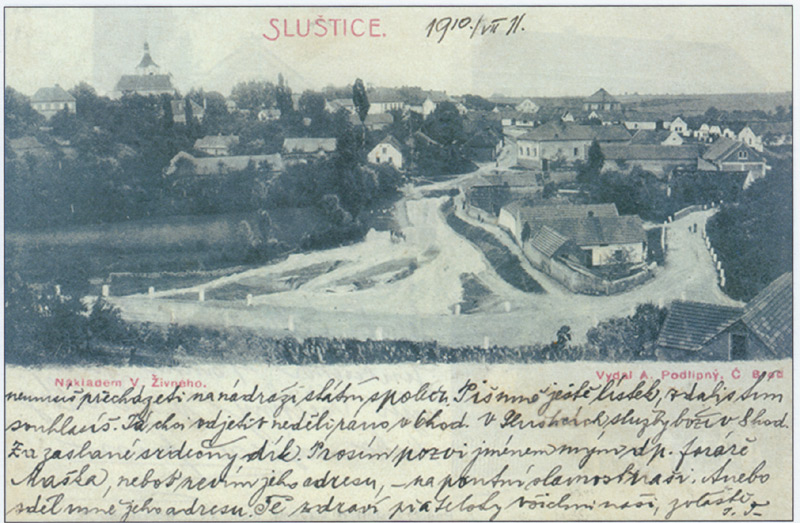 SLUŠTICE.
1910./VII 11.
Nákladem V. Živneho.
Vydal A. Podlipný, Č Brod
neumíš přecházeti na nádraží státní společ. Piš mně ještě lístek, zdali s tím
souhlasíš. Tá chci odjeti v neděli ráno, v 6 hod. v služby boží v 8 hod.
Za zaslané srdečný dík. Prosím pozvi jménem mým dp. faráře
Maška, neboť nevím jeho adresu, – na pouťní slavnost naši. Anebo
sděl mně jeho adresu. Tě zdraví přátelsky všichni naši, zvláště